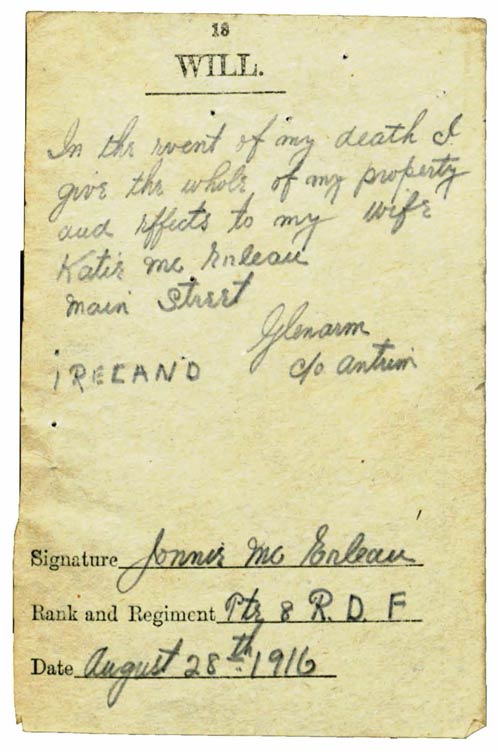 18
WILL.
In the event of my death I
give the whole of my property
and effects to my wife
Katie Mc Enleau
Main Street
Glenarm
C/o Antrim
IRELAND
Signature Jonnie Mc Enleau
Rank and Regiment Pte 8 R. D. F
Date August 28th 1916